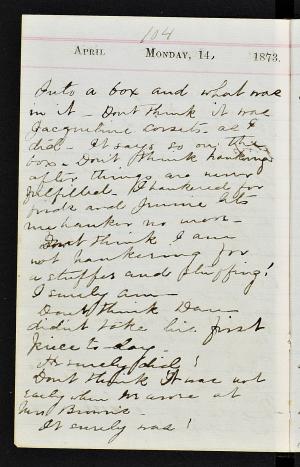 104
April Monday, 14, 1873.
Into a box and what was
in it - Don't think it was
Jacqueline corsets. as I
did - It says so on the
box - Don't think hankering
after things are never
fulfilled - I hankered for
and Jimmie lets
me hanker no more -
Don't think I am
not hankering for
a stuffer and stuffing!
I surely am -
Don't think Dan
didn't take his first
juice to-day
He surely did!
Don't think it was not
early when M arose at
Mrs
It surely was!